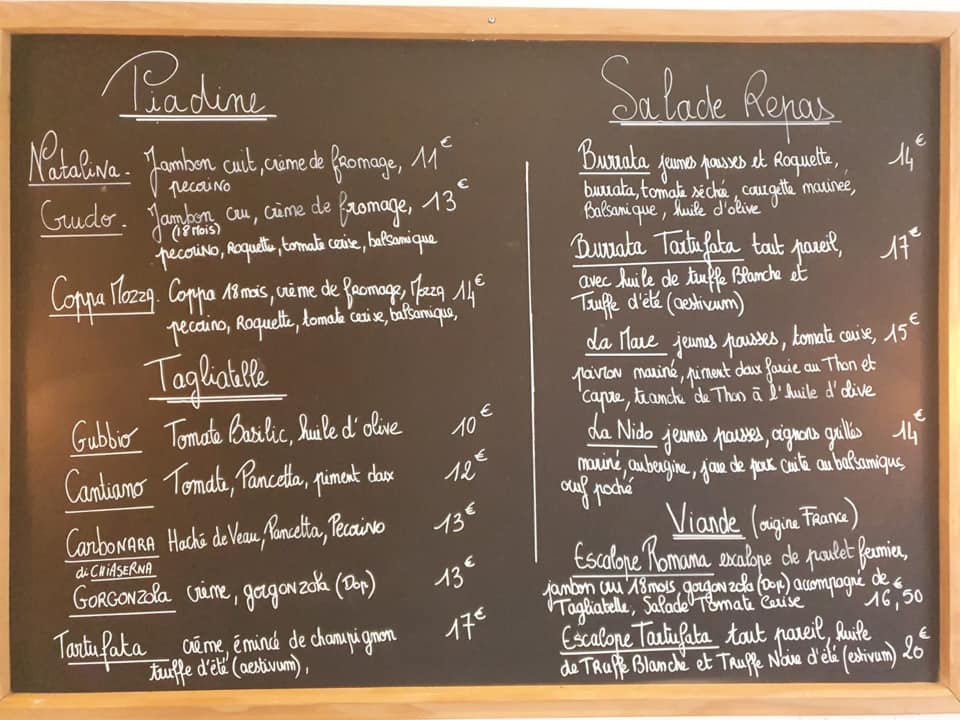 Piadine
Natalina. Jambon cuit, crème de fromage, 11€
pecorino
Crudo. Jambon cru, crème de fromage, 13€
(18 Mois)
pecorino, Roquette, tomate cerise, balsamique
Coppa Mozza. Coppa 18 mois, crème de fromage, Mozza 14€
pecorino, Roquette, tomate cerise, balsamique,
Tagliatelle
Gubbio Tomate Basilic, huile d'olive 10€
Cantiano Tomate, Pancetta, piment doux 12€
Carbonara Haché de Veau, Pancetta, Pecorino 13€
di Chiaserna
Gorgonzola crème, gorgonzola (Dop) 13€
Tartufata crème, émincé de champignon 17€
truffe d'été (aestivum),
Salade Repas
Burrata jeunes pousses et Roquette, 14€
burrata, tomate séché, courgette marinée,
Balsamique, huile d'olive
Burrata Tartufata tout pareil, 17€
avec huile de truffe Blanche et
Truffe d'été (aestivum)
La Mare jeunes pousses, tomate cerise, 15€
poivron mariné, piment doux farcie au Thon et
capre, tranche de Thon à l'huile d'olive
La Nido jeunes pousses, oignons grillés 14€
mariné, aubergine, joue de porc cuite au balsamique,
œuf poché
Viande (origine France)
Escalope Romana escalope de poulet fermier,
jambon cru 18 mois, gorgonzola (Dop) accompagné de
Tagliatelle, Salade Tomate Cerise 16,50€
Escalope Tartufata tout pareil, huile
de Truffe Blanche et Truffe Noire d'été (estivum) 20€